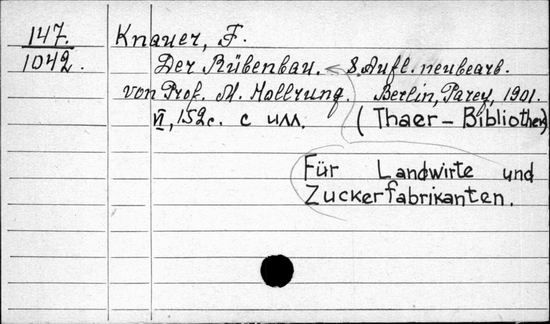 147. Knauer, F.
1042. Der Rübenbau. 8. Aufl. neubearb.
von Prof. M. Hollrung. Berlin, Parey, 1901.
VI, 152 с. с илл. (Thaer-Bibliothek)
Für Landwirte und
Zuckerfabrikanten.